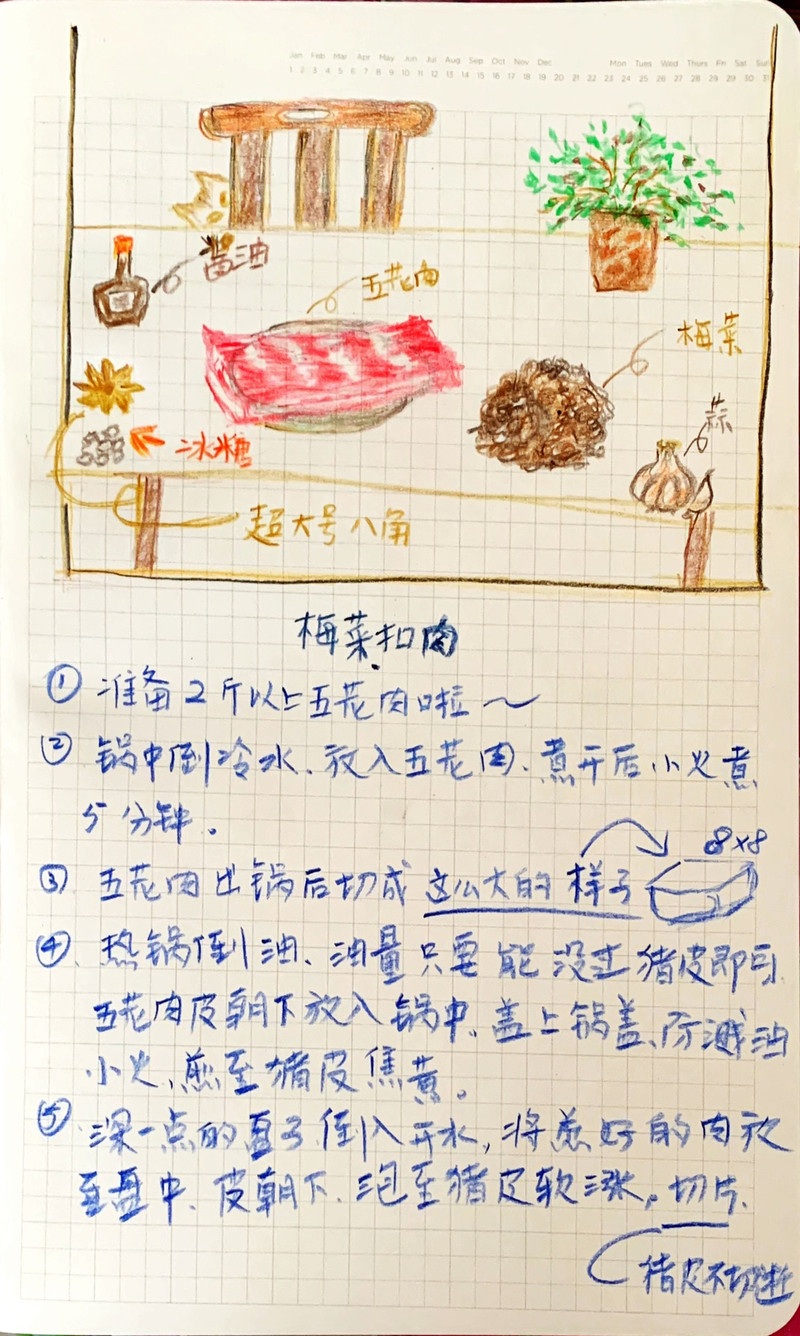 Jan Feb Mar Apr May Jun Jul Aug Sep Oct Nov Dec Mon Tues Wed Thurs Fri Sat Sun
1 2 3 4 5 6 7 8 9 10 11 12 13 14 15 16 17 18 19 20 21 22 23 24 25 26 27 28 29 30 31
酱油
五花肉
梅菜
蒜
冰糖
超大号八角
梅菜扣肉
① 准备2斤以上五花肉啦～
② 锅中倒冷水、放入五花肉、煮开后小火煮
5分钟。
③ 五花肉出锅后切成这么大的样子
8×8
④ 热锅倒油、油量只要能没过猪皮即可
五花肉皮朝下放入锅中、盖上锅盖、防溅油
小火、煎至猪皮焦黄。
⑤ 深一点的盘子倒入开水,将煎好的肉放
至盘中、皮朝下、泡至猪皮软涨。切片、
猪皮不切断